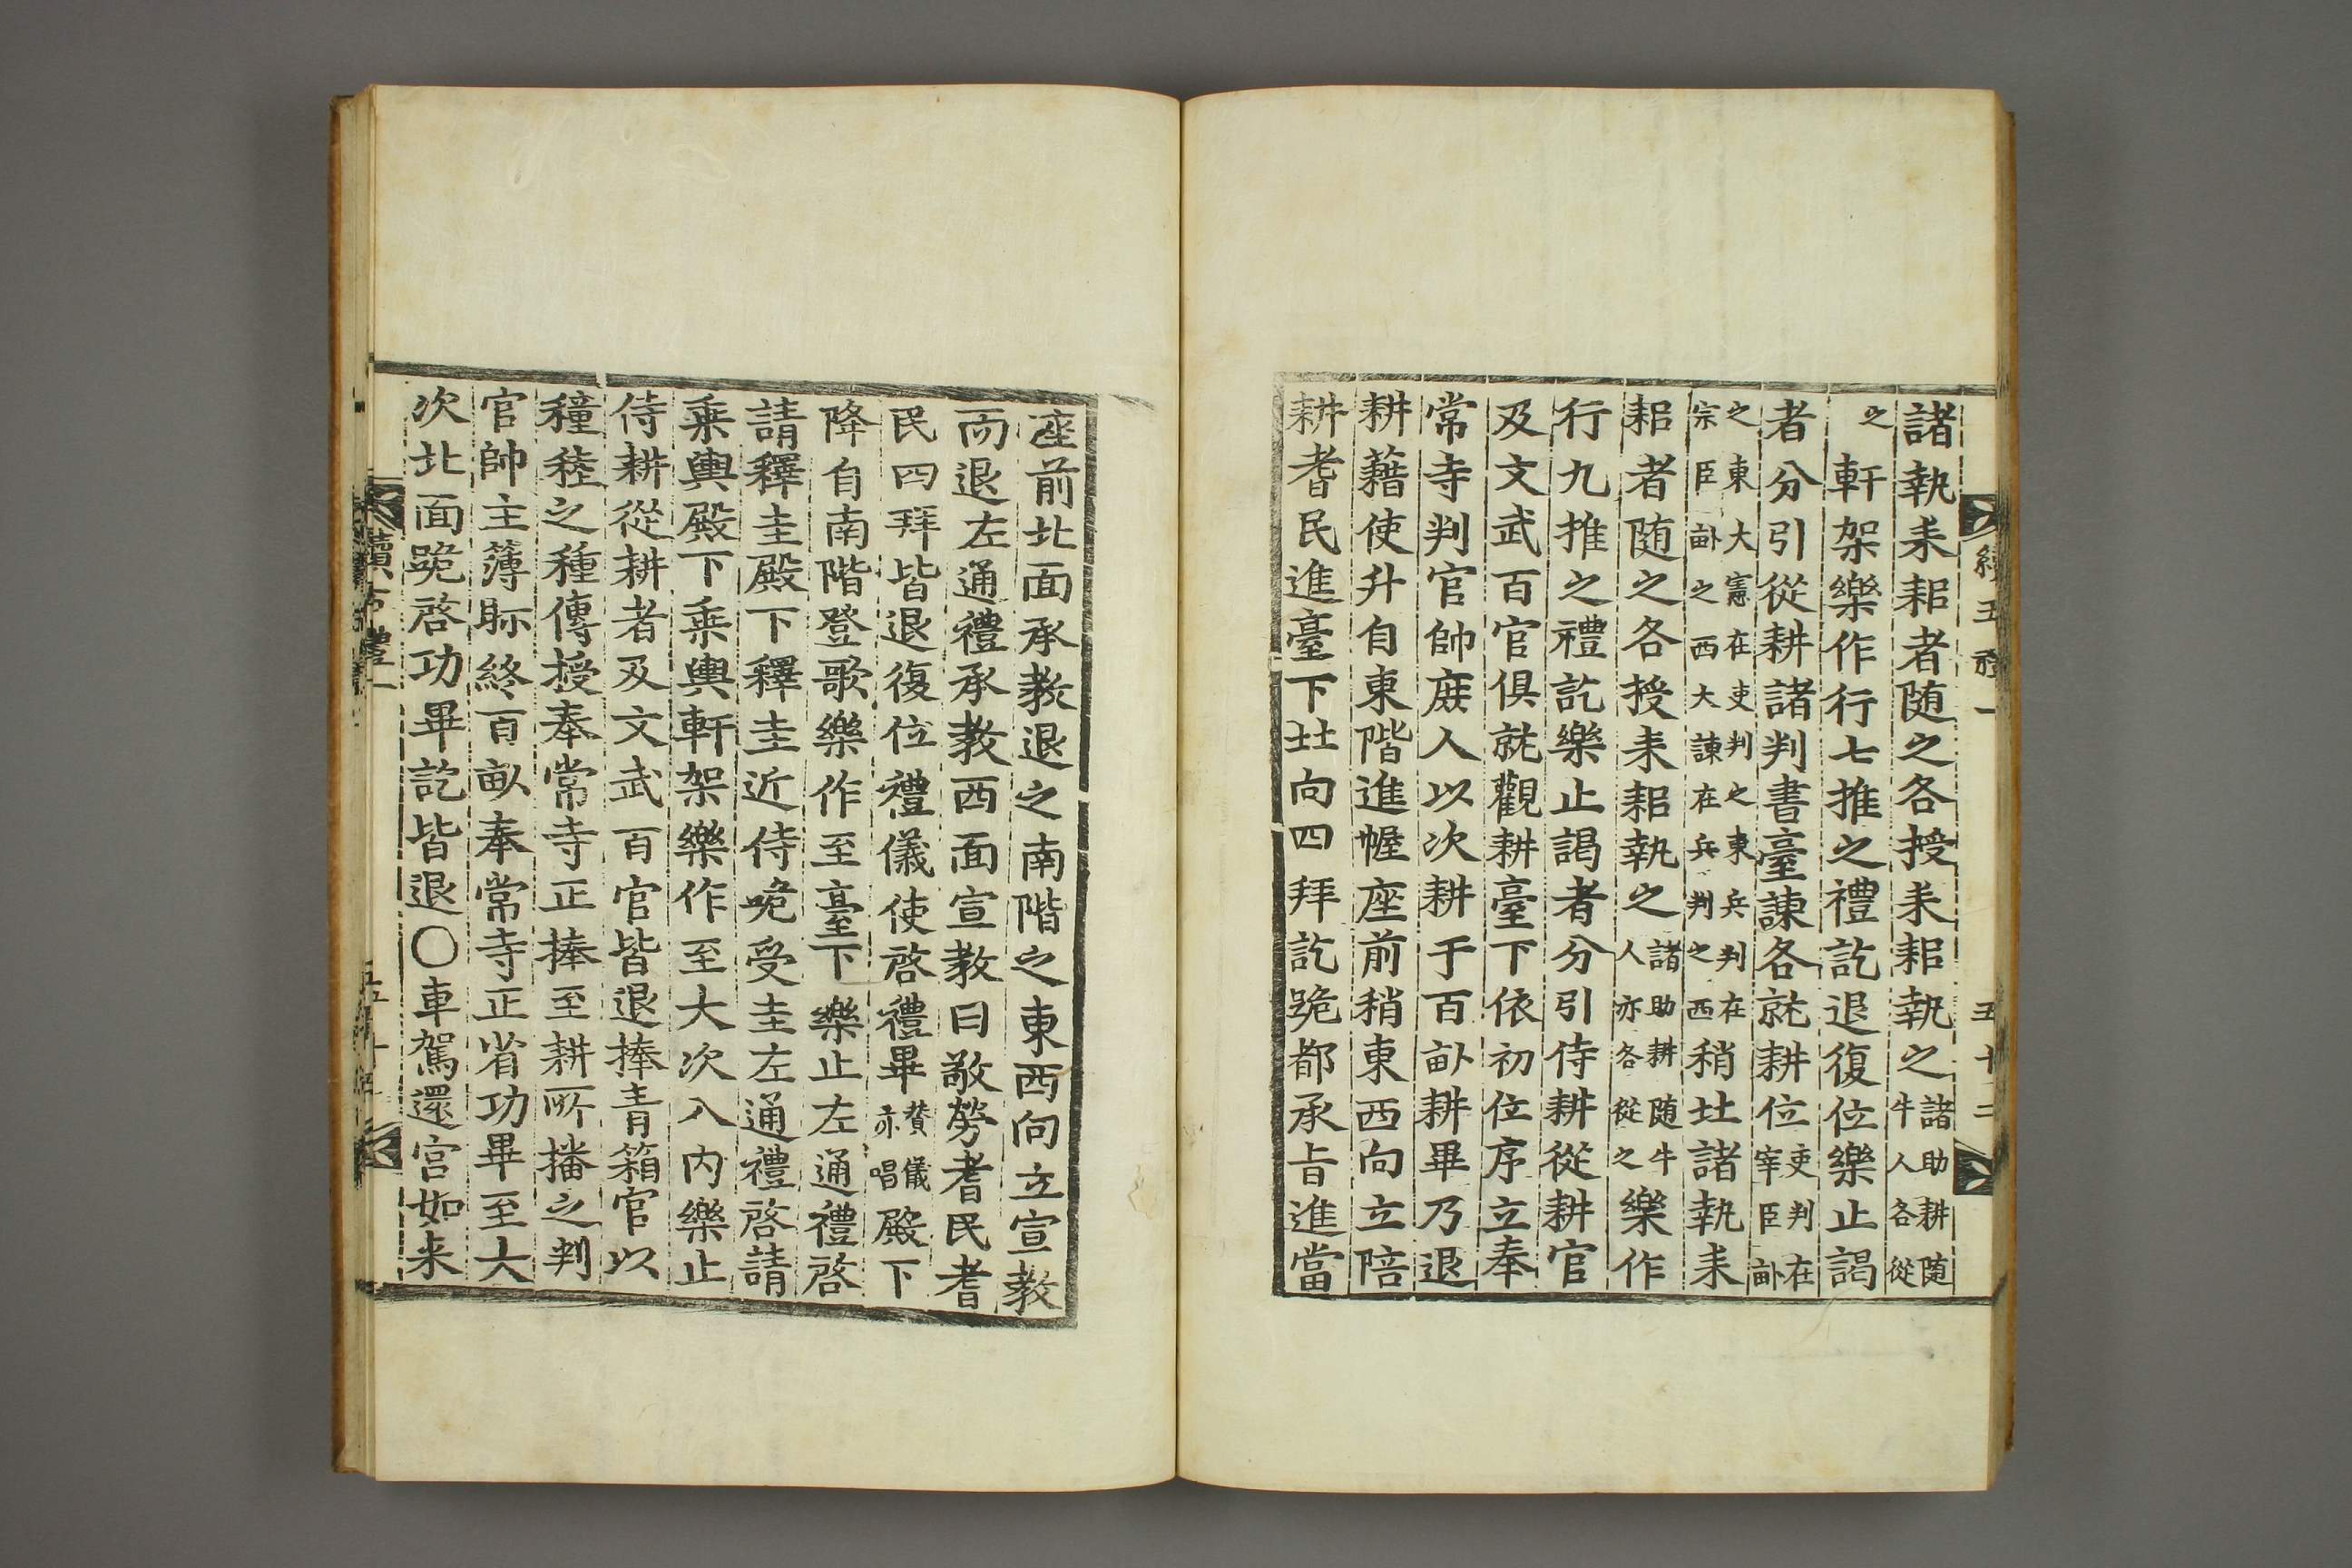 續五禮一 五十二
諸執耒耜者随之各授耒耜執之諸助耕随牛人各從
之軒架樂作行七推之禮訖退復位樂止謁
者分引從耕諸判書臺諫各就耕位吏判在宰臣畆
之東大憲在吏判之東兵判在宗臣畆之西大諫在兵判之西稍北諸執耒
耜者随之各授耒耜執之諸助耕随牛人亦各從之樂作
行九推之禮訖樂止謁者分引侍耕從耕官
及文武百官俱就觀耕臺下依初位序立奉
常寺判官帥庶人以次耕于百畆耕畢乃退
耕藉使升自東階進幄座前稍東西向立陪
耕耆民進臺下北向四拜訖跪都承旨進當
座前北面承教退之南階之東西向立宣教
而退左通禮承教西面宣教曰敬勞耆民耆
民四拜皆退復位禮儀使啓禮畢賛儀亦唱殿下
降自南階登歌樂作至臺下樂止左通禮啓
請釋圭殿下釋圭近侍跪受圭左通禮啓請
乗輿殿下乗輿軒架樂作至大次入内樂止
侍耕從耕者及文武百官皆退捧青箱官以
穜稑之種傳授奉常寺正捧至耕所播之判
官帥主簿眎終百畝奉常寺正省功畢至大
次北面跪啓功畢訖皆退〇車駕還宮如来
續五禮一